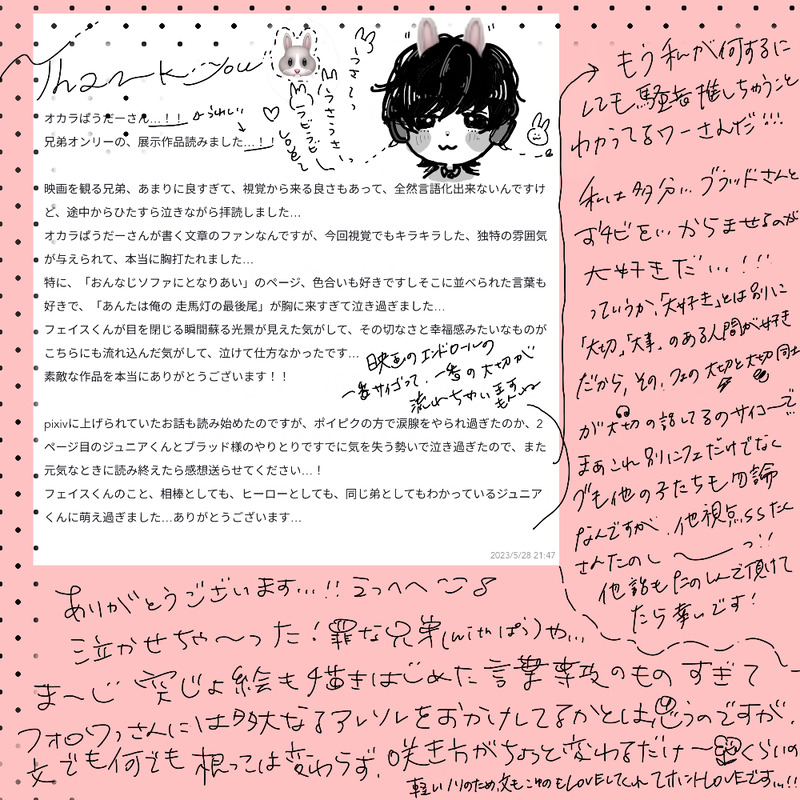 Thank you
オカラぱうだーさん…！！
うれしい
兄弟オンリーの、展示作品読みました…！！
映画を観る兄弟、あまりに良すぎて、視覚から来る良さもあって、全然言語化出来ないんですけ
ど、途中からひたすら泣きながら拝読しました…
オカラぱうだーさんが書く文章のファンなんですが、今回視覚でもキラキラした、独特の雰囲気
が与えられて、本当に胸打たれました…
特に、「おんなじソファにとなりあい」のページ、色合いも好きですしそこに並べられた言葉も
好きで、「あんたは俺の 走馬灯の最後尾」が胸に来すぎて泣き過ぎました…
フェイスくんが目を閉じる瞬間蘇る光景が見えた気がして、その切なさと幸福感みたいなものが
こちらにも流れ込んだ気がして、泣けて仕方なかったです…
素敵な作品を本当にありがとうございます！！
映画のエンドロールの
一番サイゴって、一番の大切が
流れちゃいます
もんね
pixivに上げられていたお話も読み始めたのですが、ポイピクの方で涙腺をやられ過ぎたのか、2
ページ目のジュニアくんとブラッド様のやりとりですでに気を失う勢いで泣き過ぎたので、また
元気なときに読み終えたら感想送らせてください…！
フェイスくんのこと、相棒としても、ヒーローとしても、同じ弟としてもわかっているジュニア
くんに萌え過ぎました…ありがとうございます…
2023/5/28 21:47
もう私が何するに
しても騒音推しちゃうこと
わかってるワーさんだ!!!
私は多分… ブラッドさんと
おチビを… からませるのが
大好きだ…!!!
っていうか、「大好き」とは別に
「大切」「大事」のある人間が好き
だから、その、フェの大切と大切同士
が大切の話してるのサイコーで…
まあこれ別にフェだけでなく
グも他の子たちも勿論
なんですが、他視点SSたく
さんたのし〜っ!!
他話もたのしんで頂けて
たら幸いです!
ありがとうございます…!! えっへへ
泣かせちゃ〜った! 罪な兄弟(withぱう)や…
ま〜じ 突じょ絵も描きはじめた言葉専攻のものすぎて
フォロワさんには多大なるアレソレをおかけしてるかとは思うのですが、
文でも何でも根っこは変わらず、咲き方がちょっと変わるだけ〜くらいの
軽いノリのため、文もこっちもLOVEしてくれてホントLOVEです…!!